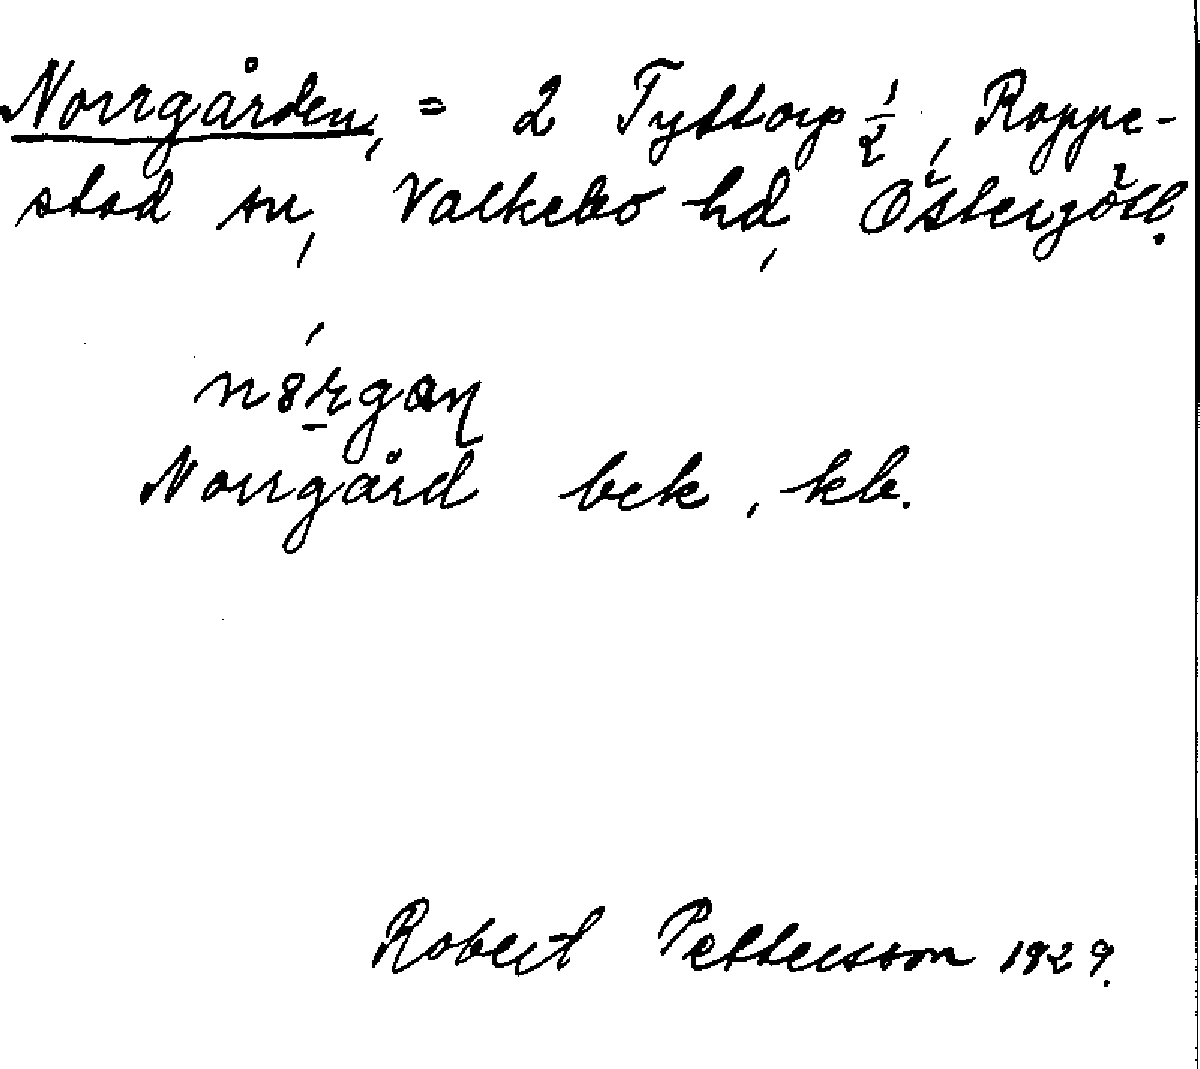 Norrgården, = 2 Tyttorp 1/2, Rappe-
stad sn, Valkebo hd, Östergötl.
Norrgård bek, kb.
Robert Pettersson 1929.